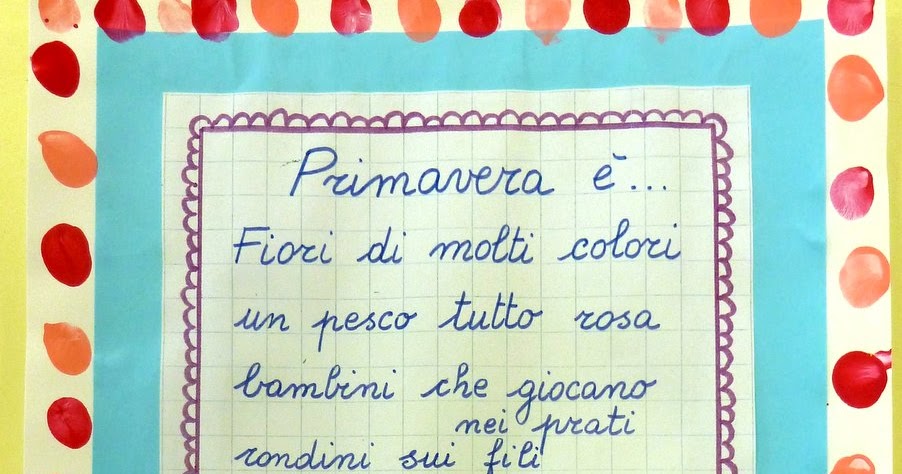 Primavera è...
Fiori di molti colori
un pesco tutto rosa
bambini che giocano
nei prati
rondini sui fili